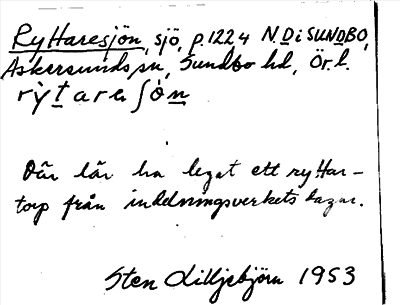 Ryttaresjön, sjö, p.1224 N. Di SUNDBO,
Askersunds sn, Sundbo hd, Ör. l.
rỳtareʃön
Där lär ha legat ett ryttar-
torp från indelningsverkets dagar.
Sten Lilljebjörn 1953